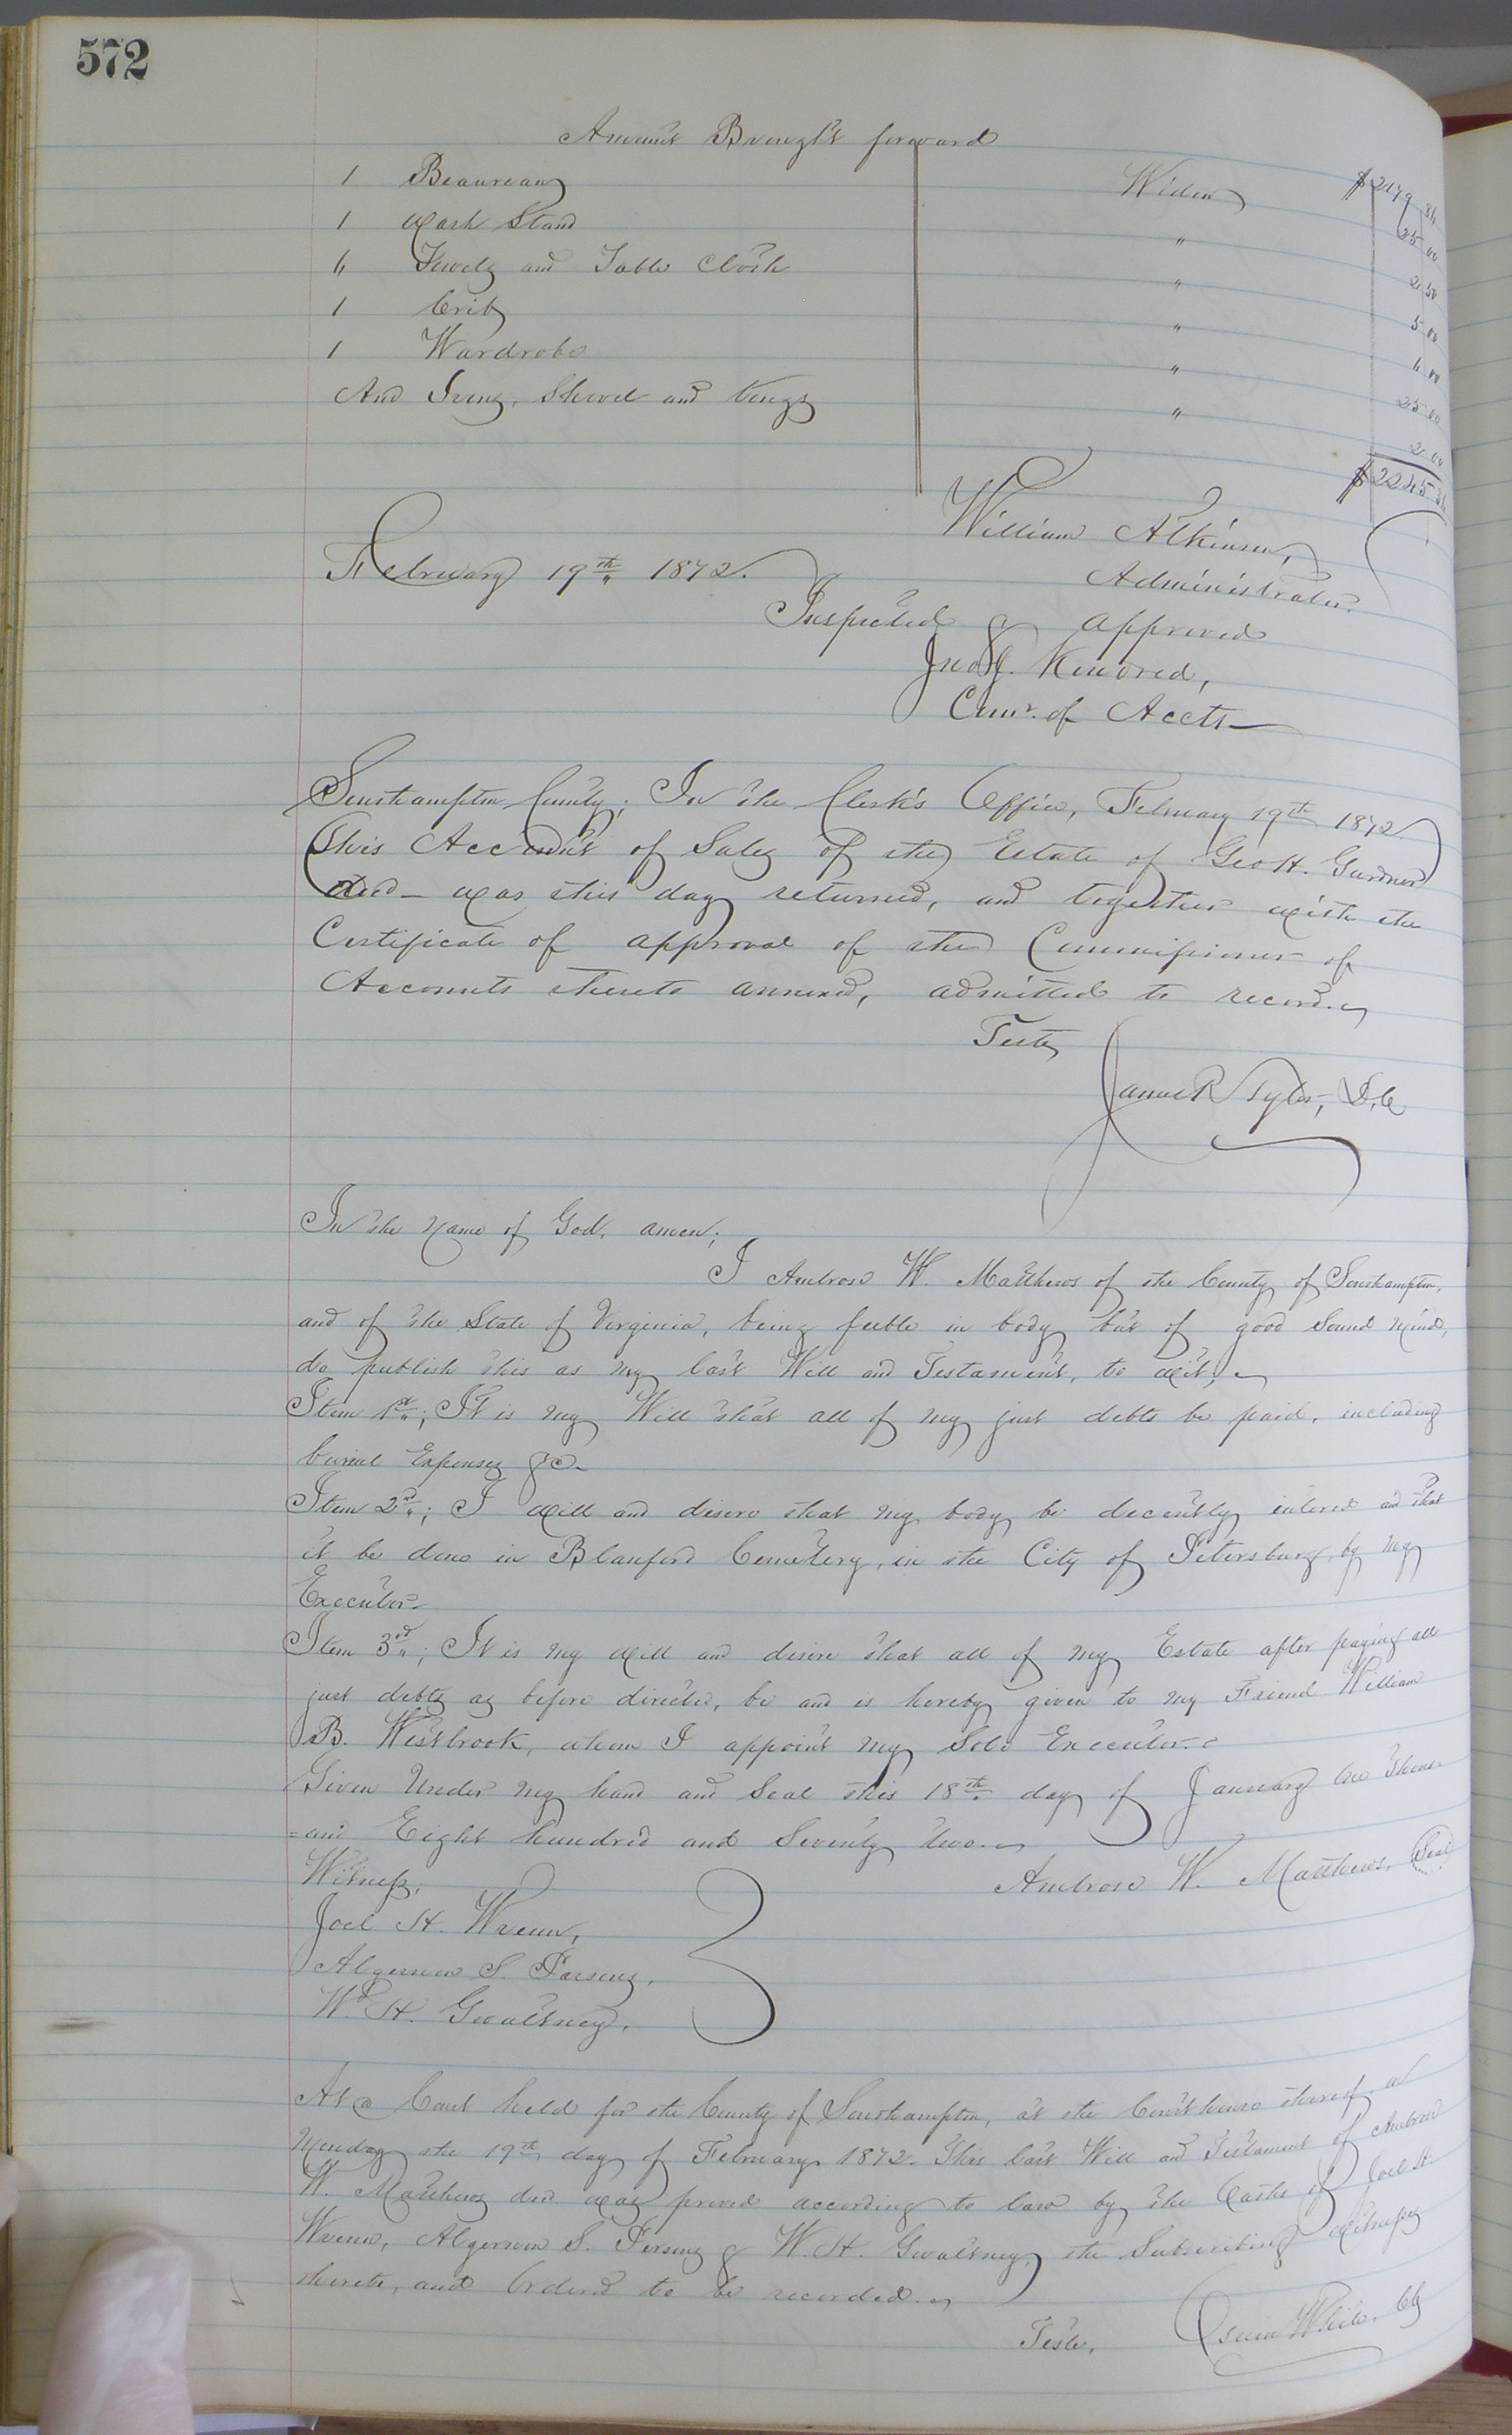 572
Amount Brought forward $2179 84
1 Beaureau Widow 25 00
1 Wash Stand " 2 50
4 Towels and Table Cloth " 5 00
1 Crib " 4 00
1 Wardrobe " 25 00
And Irons, Shovel and tongs " 2 00
$2245
William Atkinson,
Administrator.
February 19th 1872.
Inspected & approved
Jno J. Kindred,
Comr. of Accts
Southampton County; In the Clerk's Office, February 19th 1872
This Account of Sales of the Estate of Geo H. Gurner
decd was this day returned, and together with the
Certificate of approval of the Commissioner of
Accounts thereto annexed, admitted to record.
Teste
James R Tyler, D.C.
In the Name of God, amen;
I Ambrose W. Matthews of the County of Southampton,
and of the State of Virginia, being feeble in body but of good Sound Mind,
do publish this as my last Will and Testament, to wit;
Item 1st; It is my Will that all of my just debts be paid, including
burial Expenses &c.
Item 2d; I will and desire that my body be decently intered and that
it be done in Blanford Cemetery, in the City of Petersburg, by my
Executor
Item 3rd; It is my will and desire that all of my Estate after paying all
just debts as before directed, be and is hereby given to my Friend William
B. Westbrook, whom I appoint my Sole Executor.
Given Under my hand and Seal this 18th day of January
=and Eight hundred and Seventy two.
Witness; Ambrose W. Matthews, Seal
Joel H. Wrenn,
Algernon S. Parsons,
W. H. Gwaltney,
At a Court held for the County of Southampton, at the Courthouse thereof on
Monday the 19th day of February 1872. This last Will and Testament of Ambrose
W. Matthews decd was proved according to law by the Oaths of Joel H.
Wrenn, Algernon S. Persons & W. H. Gwaltney, the Subscribing witnesses
thereto, and Ordered to be recorded.
Teste, White, Clk